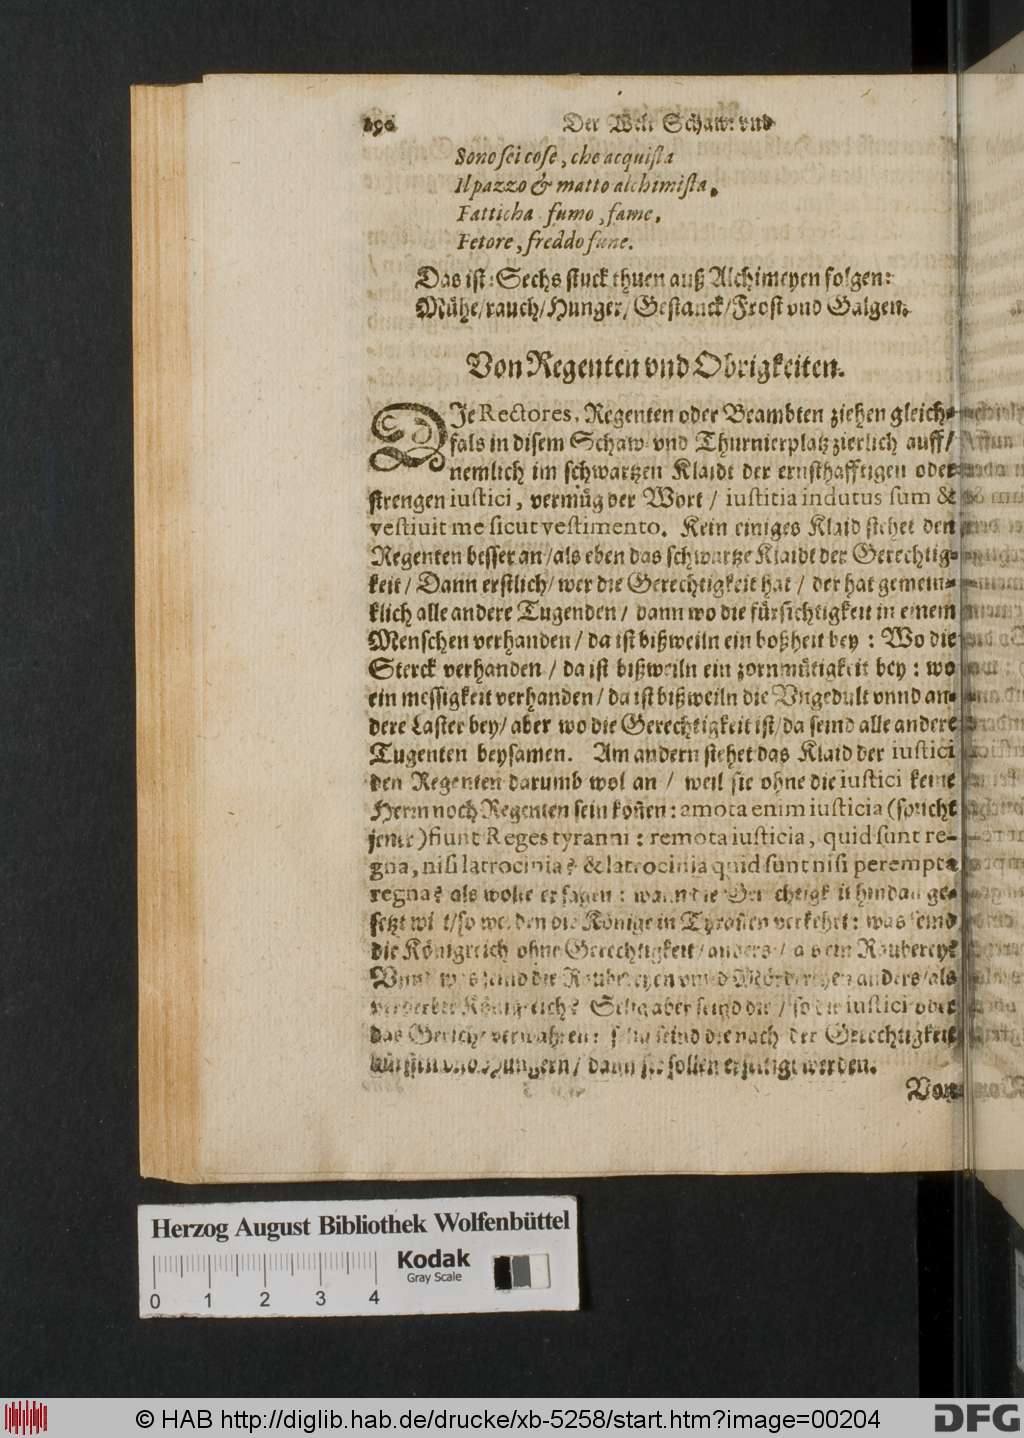 190 Der Welt Schaw: vnd
Sono sei cose, che acquista
Il pazzo & matto alchimista.
Fatticha fumo, fame,
Fetore, freddo fune.
Das ist: Sechs stuck thuen auß Alchimeyen folgen:
Mühe/rauch/Hunger/Gestanck/Frost vnd Galgen.
Von Regenten vnd Obrigkeiten.
DJe Rectores, Regenten oder Beambten ziehen gleich-
fals in disem Schaw vnd Thurnierplatz zierlich auff/
nemlich im schwartzen Klaidt der ernsthafftigen oder
strengen iustici, vermüg der Wort / iustitia indutus sum &
vestiuit me sicut vestimento. Kein einiges Klaid stehet den
Regenten besser an/als eben das schwartze Klaidt der Gerechtig-
keit/ Dann erstlich/ wer die Gerechtigkeit hat / der hat gemein-
klich alle andere Tugenden/ dann wo die fürsichtigkeit in einem
Menschen verhanden/ da ist bißweiln ein boßheit bey : Wo die
Sterck verhanden / da ist bißweiln ein zornmütigkeit bey : wo
ein messigkeit verhanden/ da ist bißweiln die Vngedult vnnd an-
dere Laster bey/ aber wo die Gerechtigkeit ist/da seind alle andere
Tugenten beysamen. Am andern stehet das Klaid der iustici
den Regenten darumb wol an / weil sie ohne die iustici keine
Herrn noch Regenten sein koñen: amota enim iusticia (spricht
jener) fiunt Reges tyranni : remota iusticia, quid sunt re-
gna, nisi latrocinia? & latrocinia quid sunt nisi perempta
regna? als wolte er sagen : wann die Gerechtigkeit hindan ge-
setzt wirt/so werden die Könige in Tyrañen verkehrt: was seind
die Königreich ohne Gerechtigkeit/ anders / als ein Rauberey?
Vnnd was seind die Raubereyen vnnd Mördereyen anders/als
verderbte Königreich? Selig aber seind die / so die iustici oder
das Gericht verwahren: selig seind die nach der Gerechtigkeit
dürsten vnd hungern/ dann sie sollen ersettigt werden.
Von
Herzog August Bibliothek Wolfenbüttel
Kodak
Gray Scale
0 1 2 3 4
© HAB http://diglib.hab.de/drucke/xb-5258/start.htm?image=00204
DFG